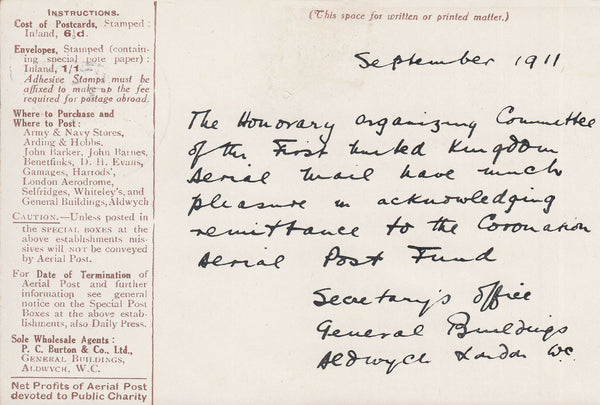 INSTRUCTIONS.
Cost of Postcards, Stamped:
Inland, 6½d.
Envelopes, Stamped (contain-
ing special note paper):
Inland, 1/1
Adhesive Stamps must be
affixed to make up the fee
required for postage abroad.
Where to Purchase and
Where to Post:
Army & Navy Stores,
Arding & Hobbs.
John Barker, John Barnes,
Benetfinks, D. H. Evans,
Gamages, Harrods',
London Aerodrome,
Selfridges, Whiteley's, and
General Buildings, Aldwych
CAUTION.—Unless posted in
the SPECIAL BOXES at the
above establishments mis-
sives will NOT be conveyed
by Aerial Post.
For Date of Termination of
Aerial Post and further
information see general
notice on the Special Post
Boxes at the above estab-
lishments, also Daily Press.
Sole Wholesale Agents:
P. C. Burton & Co., Ltd.,
GENERAL BUILDINGS,
ALDWYCH, W.C.
Net Profits of Aerial Post
devoted to Public Charity
(This space for written or printed matter.)
September 1911
The Honorary organizing Committee
of the First United Kingdom
Aerial Mail have much
pleasure in acknowledging
remittance to the Coronation
Aerial Post Fund
Secretary's Office
General Buildings
Aldwych London W.C.